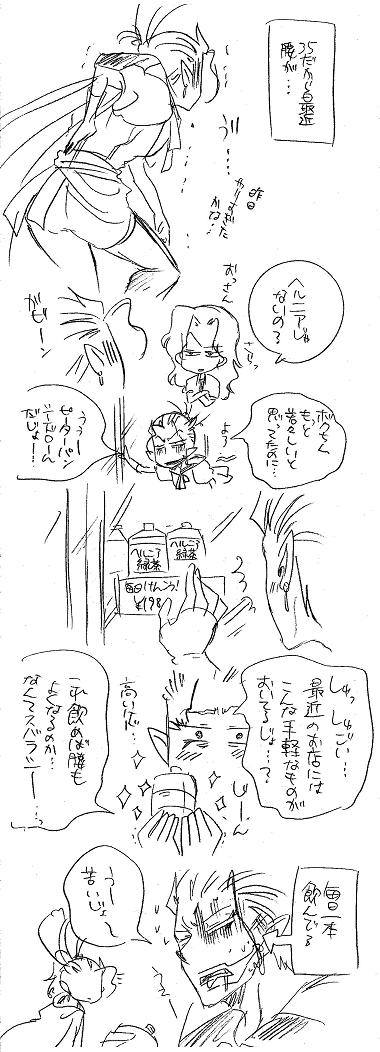 35だから最近
腰が…
う"…
昨日
やりすぎた
かな…
おっさん
ヘルニアじゃ
ないの?
ガビーン
ボクちく
もっと
若々しいと
思ってたのに…
よう
うぅー
ピーターパン
だじょー!
ヘルニア
緑茶
ヘルニア
緑茶
毎日けんこう!
¥198
しゅっしゅごい…
最近のお店には
こんな手軽なものが
おいてるじょ…?
じーん
高いが…
これ飲めば腰も
よくなるのか…
なんてスバラシー…!
毎日一本
飲んでる
うー
苦いじょ〜